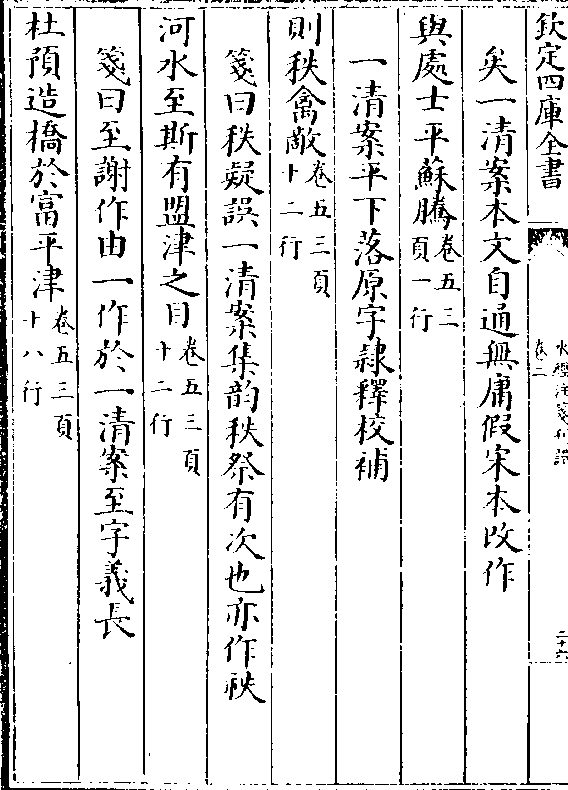 欽定四庫全書
水經注箋刊誤
卷二
二十六
矣一清案本文自通無庸假宋本改作
與處士平蘇騰卷五三頁一行
一清案平下落原字隸釋校補
則秩禽敵卷五三頁十二行
箋曰秩疑誤一清案集韵秩祭有次也亦作祑
河水至斯有盟津之目卷五三頁十二行
箋曰至謝作由一作於一清案至字義長
杜預造橋於富平津卷五三頁十八行